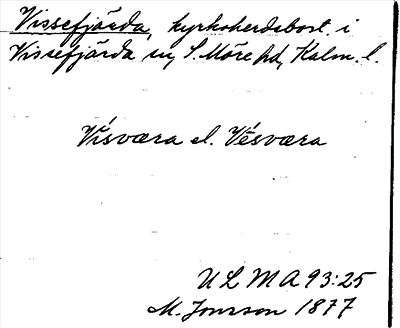 Vissefjärda, kyrkoherdebost. i
Vissefjärda sn, S. Möre hd, Kalm. l.
Vísværa el. Vésværa
ULMA 93:25
M. Jonsson 1877